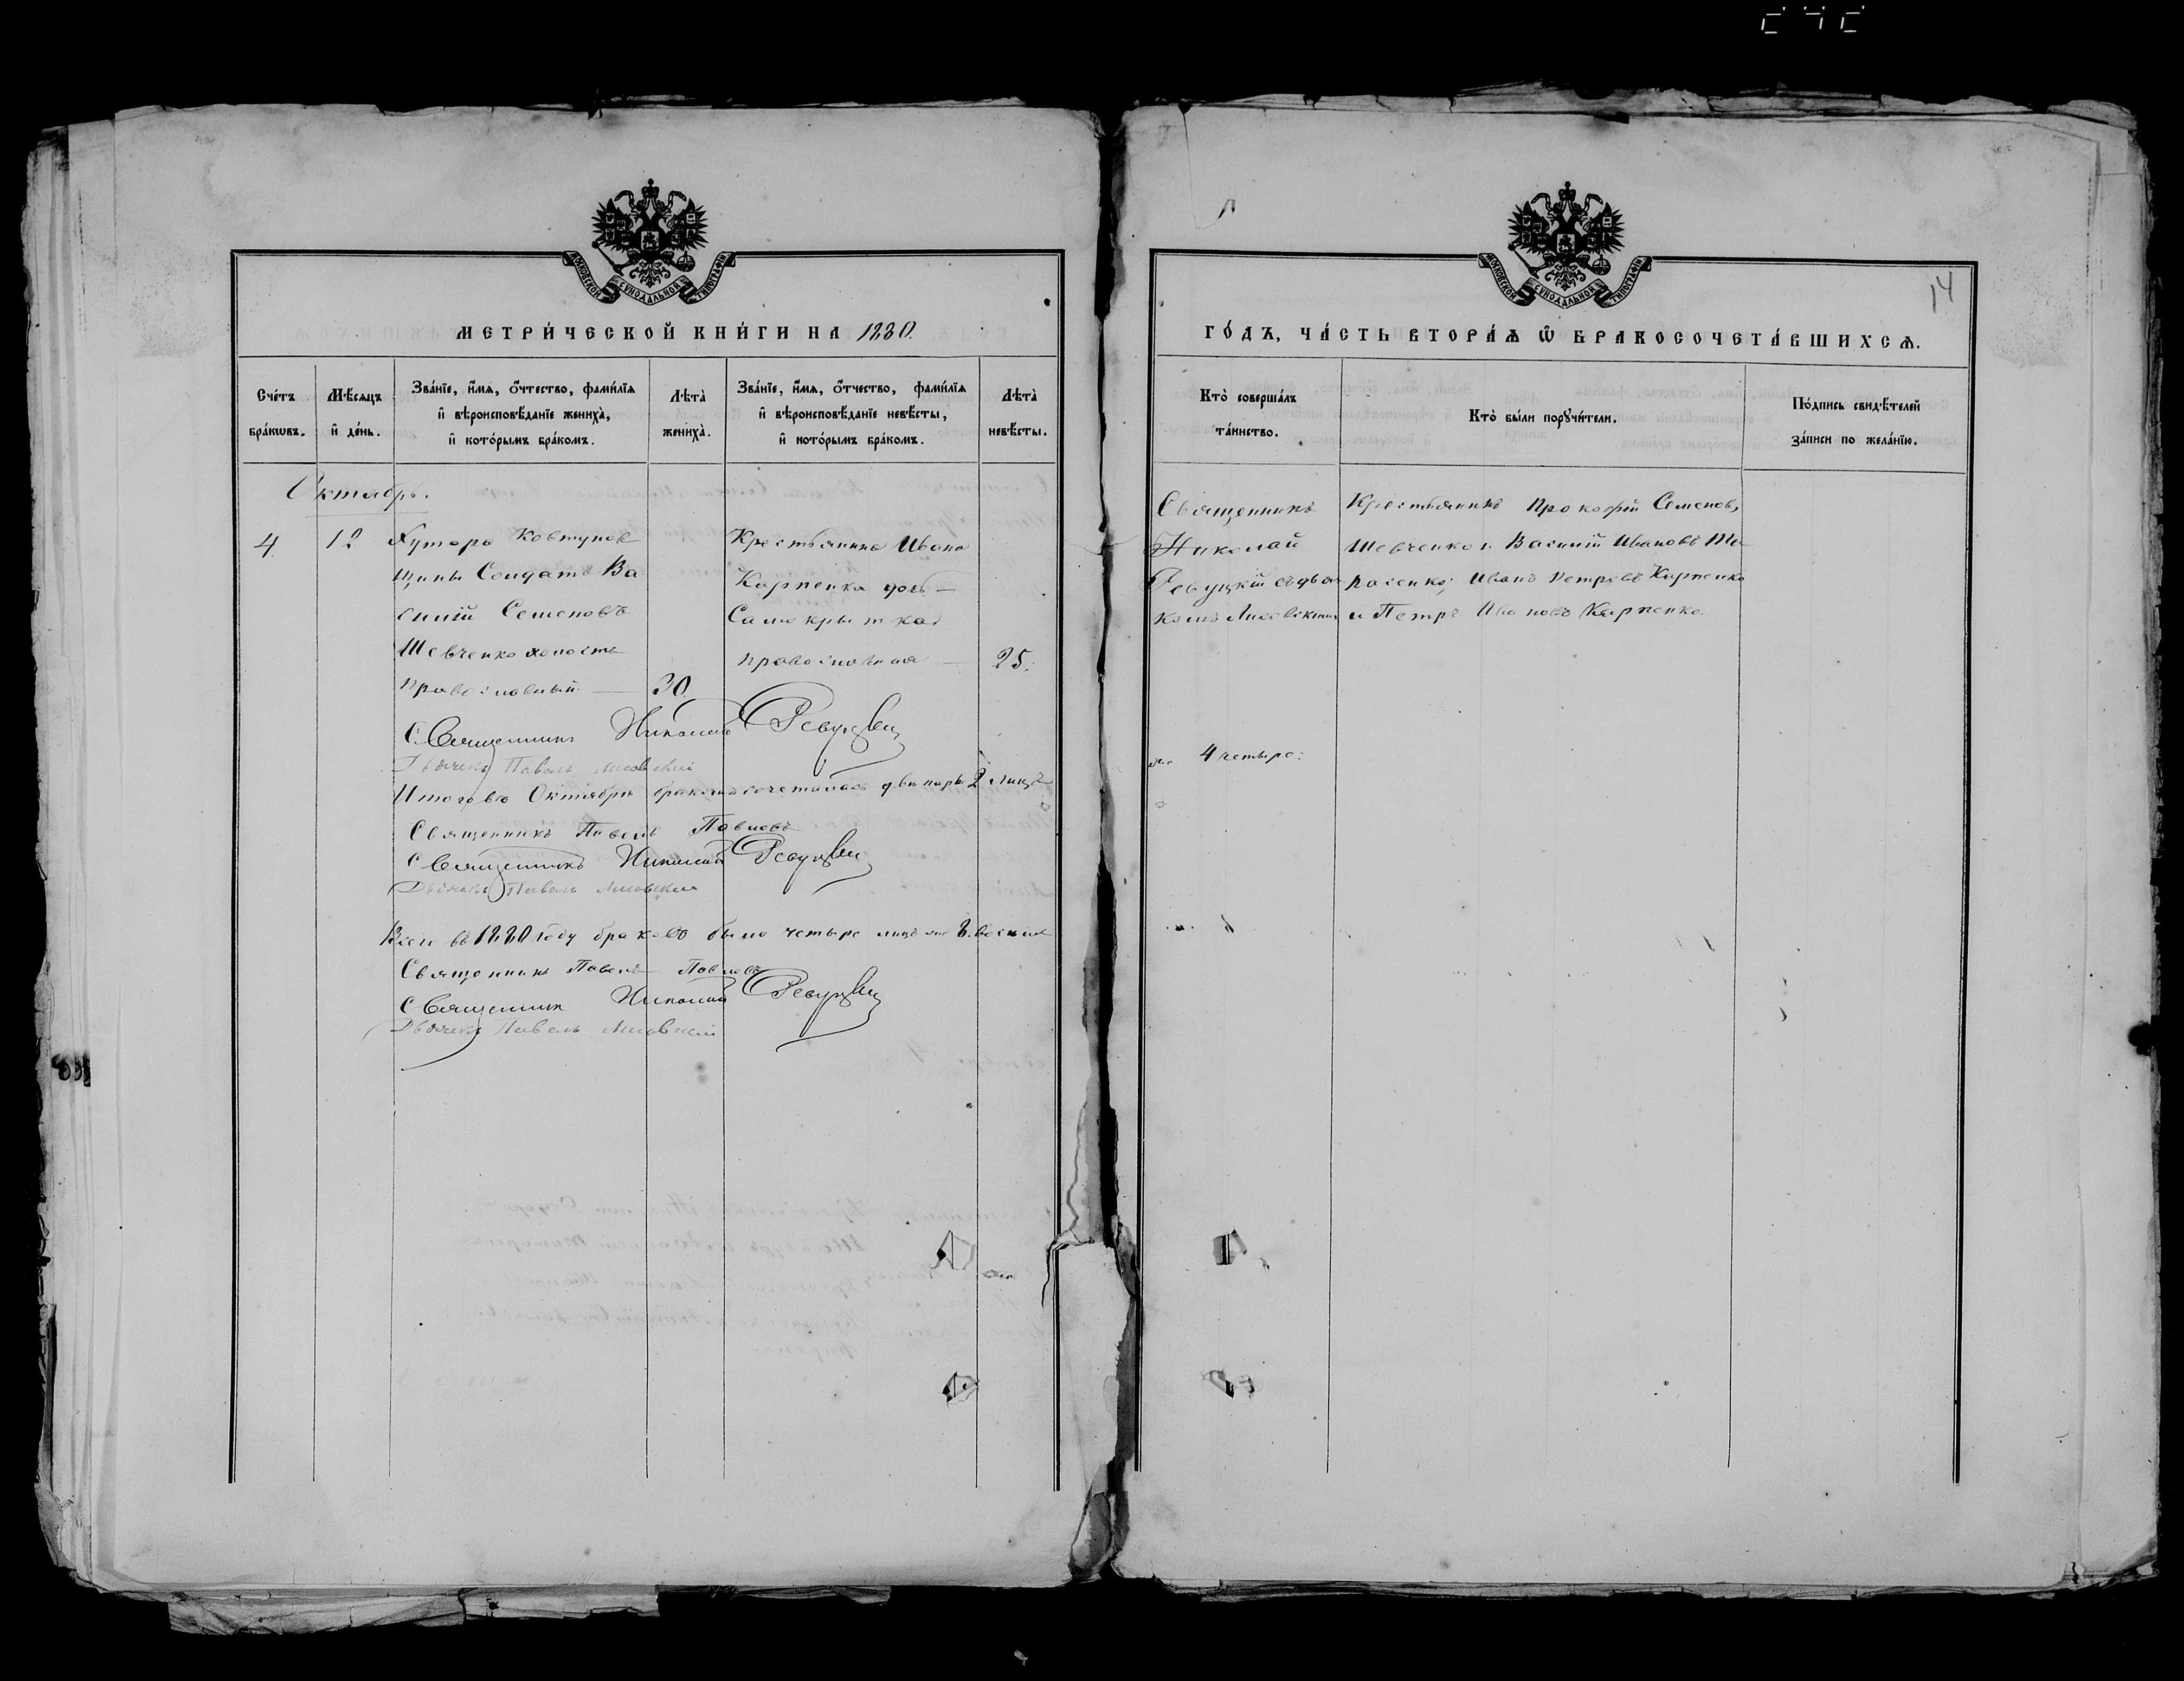 МОСКОВСКОЙ СѴНОДАЛЬНОЙ ТИПОГРАФІИ
МЕТРИ́ЧЕСКОЙ КНИ́ГИ НА 1880.
Сче́тъ бра́кѡвъ.
Мѣ́сяцъ и҆ де́нь.
Зва́нїе, и҆́мя, ѻ҆́тчество, фами́лїя
и҆ вѣроисповѣ́данїе жениха̀,
и҆ кото́рымъ бра́комъ.
Лѣта̀ жениха̀.
Зва́нїе, и҆́мя, ѻ҆́тчество, фами́лїя
и҆ вѣроисповѣ́данїе невѣ́сты,
и҆ кото́рымъ бра́комъ.
Лѣта̀ невѣ́сты.
Октябрь.
4. 12 Хутора Ковтунов
щины Солдатъ Ва
силій Семеновъ
Шевченко холостъ
православный — 30.
Крестьянина Ивана
Карпенка дочь —
православная — 25.
Священникъ Николай Ревуцкій
Дьячекъ Павелъ Лисовскій
Итого въ Октябрѣ бракомъ сочеталось двѣ пары 2 лицъ
Священникъ Павелъ Павловъ
Священникъ Николай Ревуцкій
Дьячекъ Павелъ Лисовскій
Всего въ 1880 году браковъ было четыре лицъ же 8. восемь
Священникъ Павелъ Павловъ
Священникъ Николай Ревуцкій
Дьячекъ Павелъ Лисовскій
МОСКОВСКОЙ СѴНОДАЛЬНОЙ ТИПОГРАФІИ
14
ГО́ДЪ, ЧА́СТЬ ВТОРА́Ѧ Ѽ БРАКОСОЧЕТА́ВШИХСѦ.
Кто̀ соверша́лъ
та́инство.
Кто̀ бы́ли порꙋчи́тели.
По́дпись свидѣ́телей
за́писи по жела́нїю.
Священникъ
Николай
Ревуцкій съ дьяч
комъ Лисовскимъ
Крестьянинъ Прокофій Семеновъ
Шевченко и Василій Ивановъ Та
расенко; Иванъ Петровъ Карпенко
и Петръ Ивановъ Карпенко.
4 четыре: